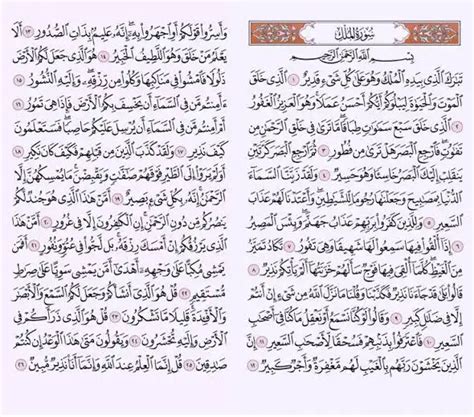 سُورَةُ المُلْكِ
بِسْمِ ٱللَّهِ ٱلرَّحْمَٰنِ ٱلرَّحِيمِ
تَبَٰرَكَ ٱلَّذِى بِيَدِهِ ٱلْمُلْكُ وَهُوَ عَلَىٰ كُلِّ شَىْءٍ قَدِيرٌ ١ ٱلَّذِى خَلَقَ
ٱلْمَوْتَ وَٱلْحَيَوٰةَ لِيَبْلُوَكُمْ أَيُّكُمْ أَحْسَنُ عَمَلًا وَهُوَ ٱلْعَزِيزُ ٱلْغَفُورُ
٢ ٱلَّذِى خَلَقَ سَبْعَ سَمَٰوَٰتٍ طِبَاقًا مَّا تَرَىٰ فِى خَلْقِ ٱلرَّحْمَٰنِ مِن
تَفَٰوُتٍ فَٱرْجِعِ ٱلْبَصَرَ هَلْ تَرَىٰ مِن فُطُورٍ ٣ ثُمَّ ٱرْجِعِ ٱلْبَصَرَ كَرَّتَيْنِ
يَنقَلِبْ إِلَيْكَ ٱلْبَصَرُ خَاسِئًا وَهُوَ حَسِيرٌ ٤ وَلَقَدْ زَيَّنَّا ٱلسَّمَآءَ
ٱلدُّنْيَا بِمَصَٰبِيحَ وَجَعَلْنَٰهَا رُجُومًا لِّلشَّيَٰطِينِ وَأَعْتَدْنَا لَهُمْ عَذَابَ
ٱلسَّعِيرِ ٥ وَلِلَّذِينَ كَفَرُوا۟ بِرَبِّهِمْ عَذَابُ جَهَنَّمَ وَبِئْسَ ٱلْمَصِيرُ
٦ إِذَآ أُلْقُوا۟ فِيهَا سَمِعُوا۟ لَهَا شَهِيقًا وَهِىَ تَفُورُ ٧ تَكَادُ تَمَيَّزُ
مِنَ ٱلْغَيْظِ كُلَّمَآ أُلْقِىَ فِيهَا فَوْجٌ سَأَلَهُمْ خَزَنَتُهَآ أَلَمْ يَأْتِكُمْ نَذِيرٌ ٨
قَالُوا۟ بَلَىٰ قَدْ جَآءَنَا نَذِيرٌ فَكَذَّبْنَا وَقُلْنَا مَا نَزَّلَ ٱللَّهُ مِن شَىْءٍ إِنْ أَنتُمْ
إِلَّا فِى ضَلَٰلٍ كَبِيرٍ ٩ وَقَالُوا۟ لَوْ كُنَّا نَسْمَعُ أَوْ نَعْقِلُ مَا كُنَّا فِىٓ أَصْحَٰبِ
ٱلسَّعِيرِ ١٠ فَٱعْتَرَفُوا۟ بِذَنۢبِهِمْ فَسُحْقًا لِّأَصْحَٰبِ ٱلسَّعِيرِ ١١ إِنَّ
ٱلَّذِينَ يَخْشَوْنَ رَبَّهُم بِٱلْغَيْبِ لَهُم مَّغْفِرَةٌ وَأَجْرٌ كَبِيرٌ ١٢
وَأَسِرُّوا۟ قَوْلَكُمْ أَوِ ٱجْهَرُوا۟ بِهِۦٓ إِنَّهُۥ عَلِيمٌۢ بِذَاتِ ٱلصُّدُورِ ١٣ أَلَا
يَعْلَمُ مَنْ خَلَقَ وَهُوَ ٱللَّطِيفُ ٱلْخَبِيرُ ١٤ هُوَ ٱلَّذِى جَعَلَ لَكُمُ ٱلْأَرْضَ
ذَلُولًا فَٱمْشُوا۟ فِى مَنَاكِبِهَا وَكُلُوا۟ مِن رِّزْقِهِۦ وَإِلَيْهِ ٱلنُّشُورُ ١٥
ءَأَمِنتُم مَّن فِى ٱلسَّمَآءِ أَن يَخْسِفَ بِكُمُ ٱلْأَرْضَ فَإِذَا هِىَ تَمُورُ ١٦
أَمْ أَمِنتُم مَّن فِى ٱلسَّمَآءِ أَن يُرْسِلَ عَلَيْكُمْ حَاصِبًا فَسَتَعْلَمُونَ
كَيْفَ نَذِيرِ ١٧ وَلَقَدْ كَذَّبَ ٱلَّذِينَ مِن قَبْلِهِمْ فَكَيْفَ كَانَ نَكِيرِ ١٨
أَوَلَمْ يَرَوْا۟ إِلَى ٱلطَّيْرِ فَوْقَهُمْ صَٰٓفَّٰتٍ وَيَقْبِضْنَ مَا يُمْسِكُهُنَّ إِلَّا
ٱلرَّحْمَٰنُ إِنَّهُۥ بِكُلِّ شَىْءٍۭ بَصِيرٌ ١٩ أَمَّنْ هَٰذَا ٱلَّذِى هُوَ جُندٌ لَّكُمْ
يَنصُرُكُم مِّن دُونِ ٱلرَّحْمَٰنِ إِنِ ٱلْكَٰفِرُونَ إِلَّا فِى غُرُورٍ ٢٠ أَمَّنْ هَٰذَا
ٱلَّذِى يَرْزُقُكُمْ إِنْ أَمْسَكَ رِزْقَهُۥ بَل لَّجُّوا۟ فِى عُتُوٍّ وَنُفُورٍ ٢١ أَفَمَن
يَمْشِى مُكِبًّا عَلَىٰ وَجْهِهِۦٓ أَهْدَىٰٓ أَمَّن يَمْشِى سَوِيًّا عَلَىٰ صِرَٰطٍ
مُّسْتَقِيمٍ ٢٢ قُلْ هُوَ ٱلَّذِىٓ أَنشَأَكُمْ وَجَعَلَ لَكُمُ ٱلسَّمْعَ وَٱلْأَبْصَٰرَ
وَٱلْأَفْـِٔدَةَ قَلِيلًا مَّا تَشْكُرُونَ ٢٣ قُلْ هُوَ ٱلَّذِى ذَرَأَكُمْ فِى
ٱلْأَرْضِ وَإِلَيْهِ تُحْشَرُونَ ٢٤ وَيَقُولُونَ مَتَىٰ هَٰذَا ٱلْوَعْدُ إِن كُنتُمْ
صَٰدِقِينَ ٢٥ قُلْ إِنَّمَا ٱلْعِلْمُ عِندَ ٱللَّهِ وَإِنَّمَآ أَنَا۠ نَذِيرٌ مُّبِينٌ ٢٦